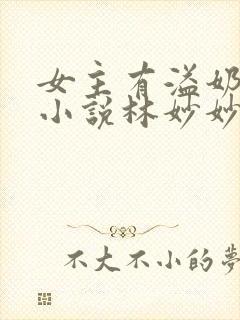 女主有溢奶
小說林妙妙
不大不小的夢